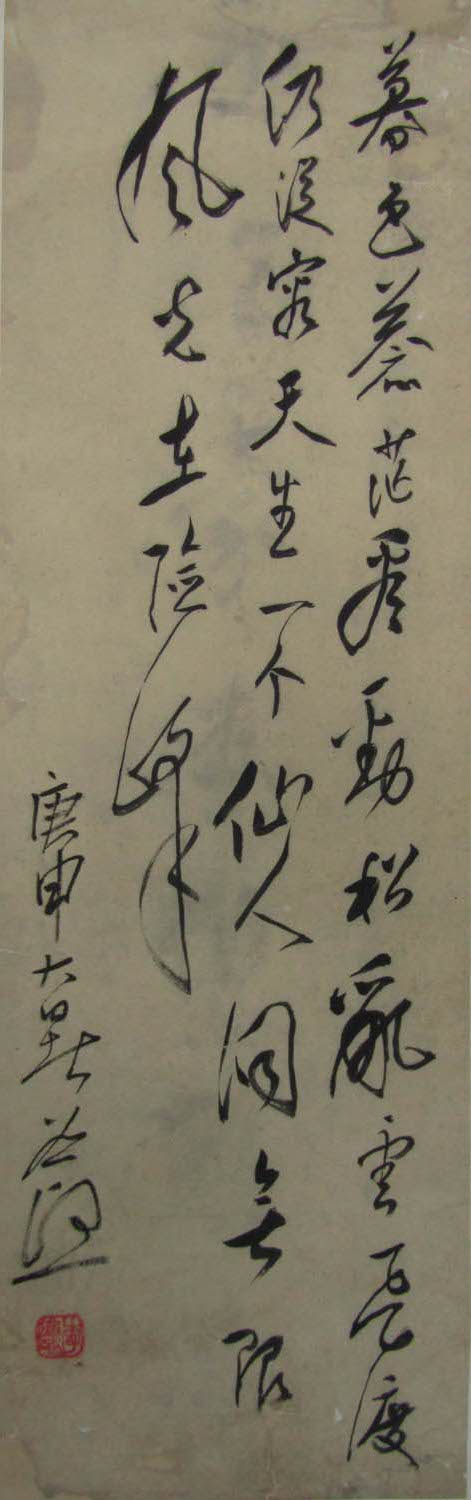 暮色蒼茫看勁松亂雲飛度
仍從容天生一个仙人洞無限
風光在險峰
庚申大暑